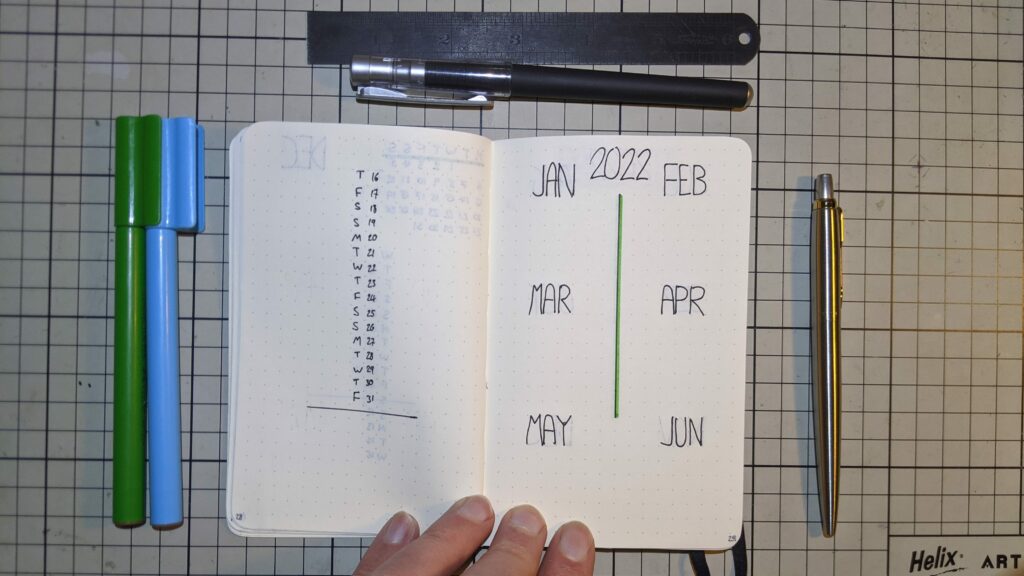 T 16
F 17
S 18
S 19
M 20
T 21
W 22
T 23
F 24
S 25
S 26
M 27
T 28
W 29
T 30
F 31
2022
JAN FEB
MAR APR
MAY JUN
Helix ART